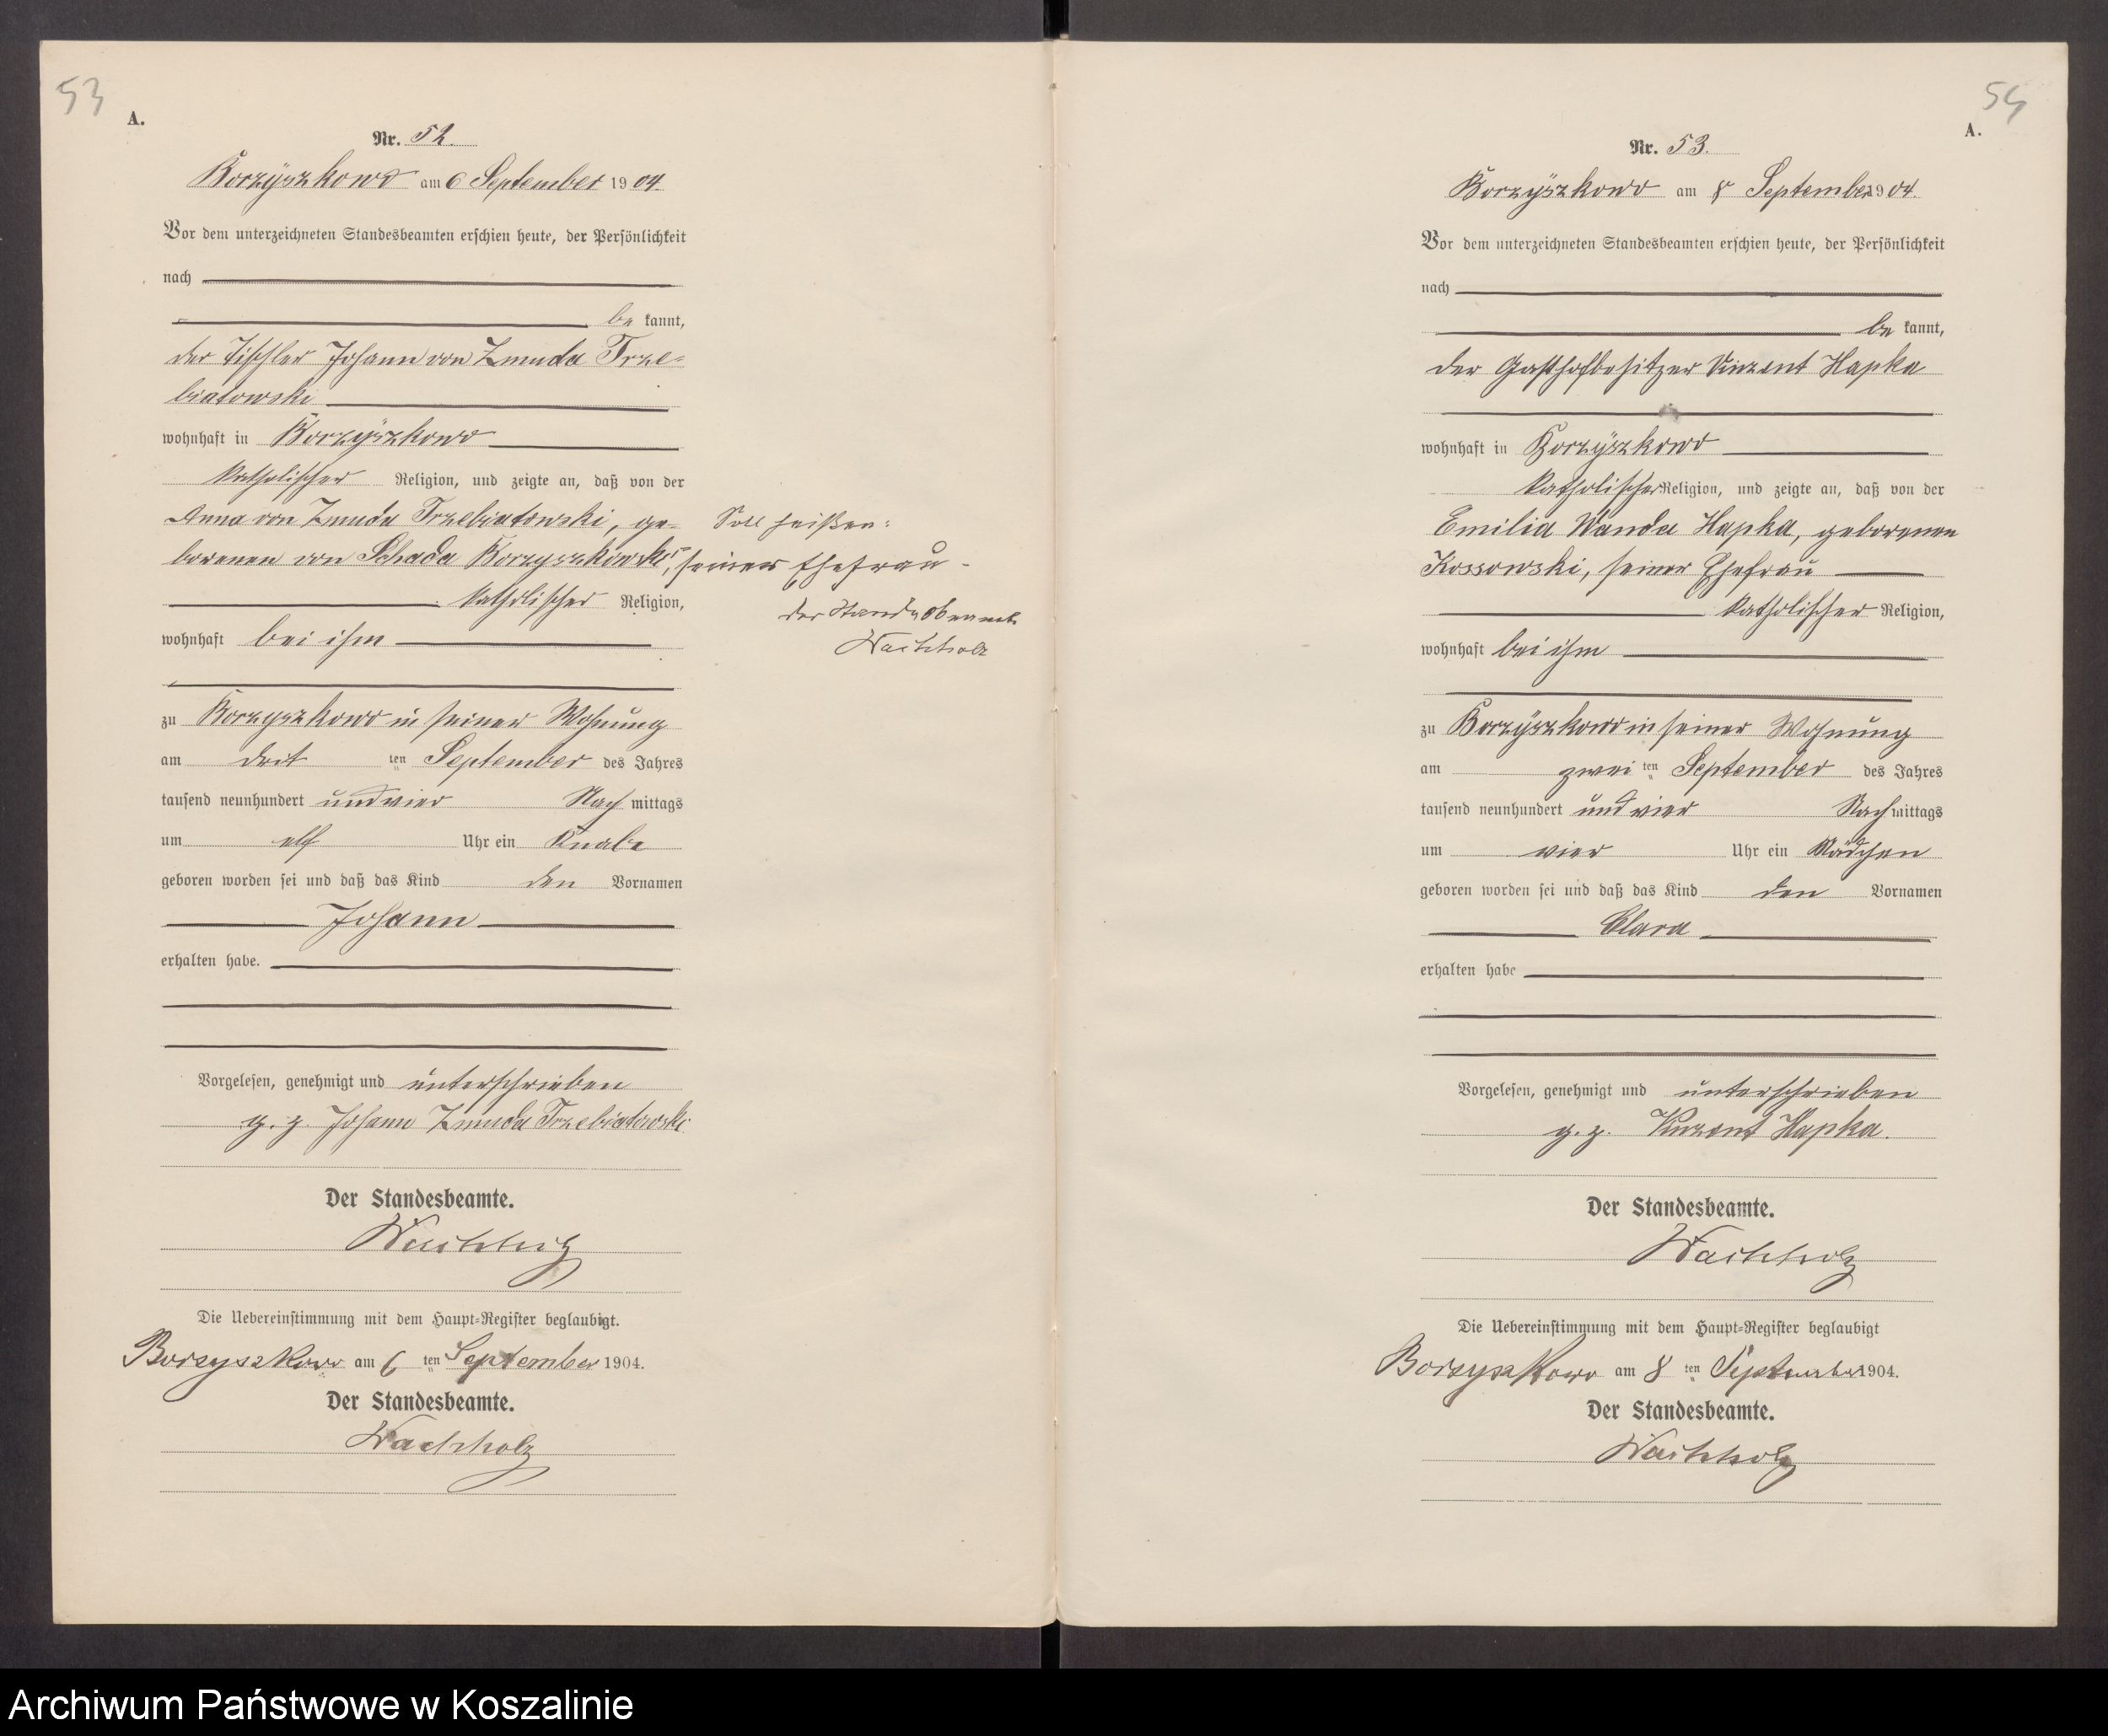 53
A.
Nr. 52.
Borzÿszkowo am 6 September 1904.
Vor dem unterzeichneten Standesbeamten erschien heute, der Persönlichkeit
nach
be kannt,
der Tischler Johann von Zmuda Trze-
biatowski
wohnhaft in Borzÿszkowo
katholischer Religion, und zeigte an, daß von der
Anna von Zmuda Trzebiatowski, ge-
borenen von Schada Borzyszkowski,
katholischer Religion,
wohnhaft bei ihm
zu Borzyszkowo in seiner Wohnung
am drit ten September des Jahres
tausend neunhundert und vier Nach mittags
um elf Uhr ein Knabe
geboren worden sei und daß das Kind den Vornamen
Johann
erhalten habe.
Vorgelesen, genehmigt und unterschrieben
g. z. Johann Zmuda Trzebiatowski
Der Standesbeamte.
Wachholz
Die Uebereinstimmung mit dem Haupt-Register beglaubigt.
Borzyszkowo am 6 ten September 1904.
Der Standesbeamte.
Wachholz
Soll heißen:
seiner Ehefrau -
der Standesbeamte
Wachholz
54
A.
Nr. 53.
Borzÿszkowo am 8 September 1904.
Vor dem unterzeichneten Standesbeamten erschien heute, der Persönlichkeit
nach
be kannt,
der Gasthofbesitzer Vinzent Hapka
wohnhaft in Borzÿszkowo
katholischer Religion, und zeigte an, daß von der
Emilia Wanda Hapka, geborenen
Kossowski, seiner Ehefrau
katholischer Religion,
wohnhaft bei ihm
zu Borzÿszkowo in seiner Wohnung
am zwei ten September des Jahres
tausend neunhundert und vier Nach mittags
um vier Uhr ein Mädchen
geboren worden sei und daß das Kind den Vornamen
Clara
erhalten habe
Vorgelesen, genehmigt und unterschrieben
g. z. Vinzent Hapka.
Der Standesbeamte.
Wachholz
Die Uebereinstimmung mit dem Haupt-Register beglaubigt
Borzyszkowo am 8 ten September 1904.
Der Standesbeamte.
Wachholz
Archiwum Państwowe w Koszalinie